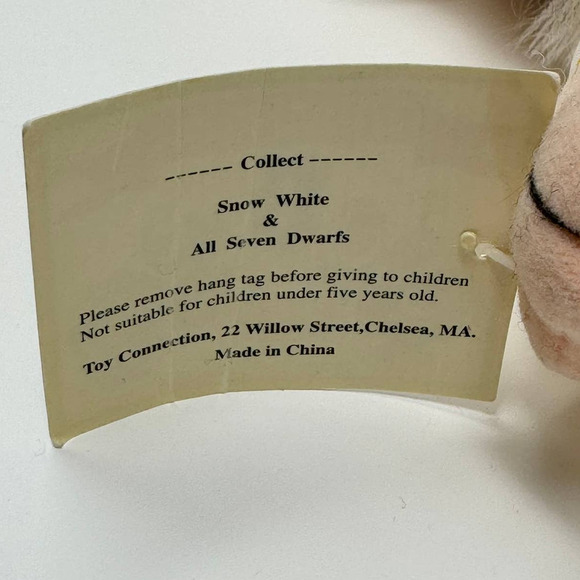 ------ Collect ------
Snow White
&
All Seven Dwarfs
Please remove hang tag before giving to children
Not suitable for children under five years old.
Toy Connection, 22 Willow Street,Chelsea, MA.
Made in China